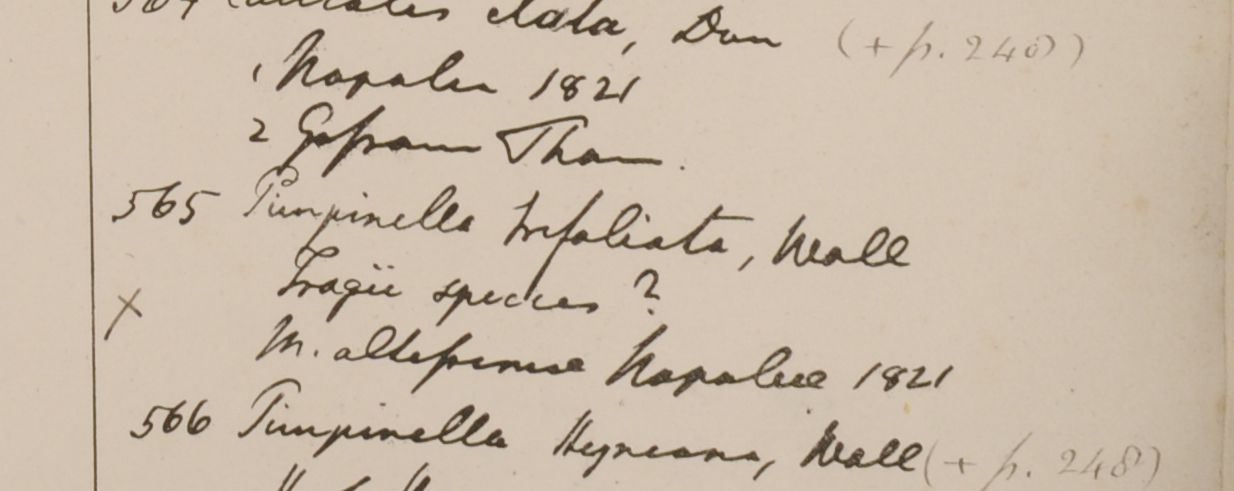 564 elata, Don (+ p. 248)
1 Napalia 1821
2 Gossam Than.
565 Pimpinella trifoliata, Wall
Tragii species ?
X
M. altissimis Napaliae 1821
566 Pimpinella Heyneana, Wall (+ p. 248)